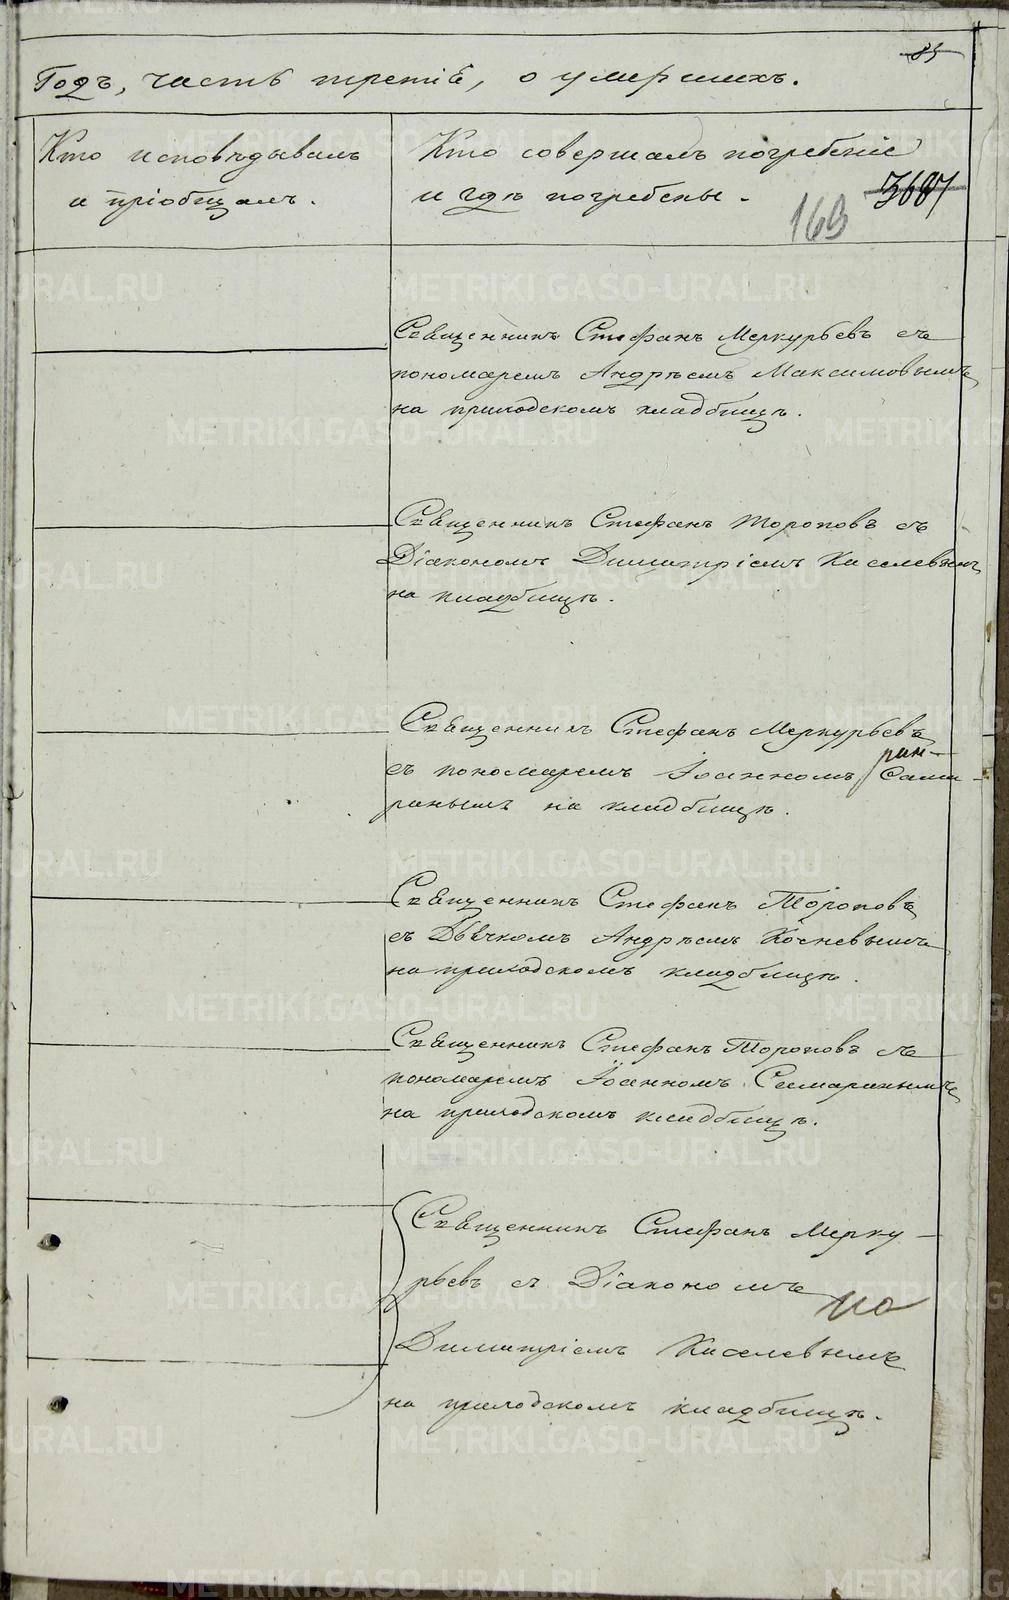 85
Годъ, часть третіѣ, о умершихъ.
Кто исповѣдывалъ
и пріобщалъ.
Кто совершалъ погребеніе
и гдѣ погребены.
169
3687
Священникъ Стефанъ Меркурьевъ съ
пономаремъ Андрѣемъ Максимовымъ
на приходскомъ кладбищѣ.
Священникъ Стефанъ Тороповъ съ
Діакономъ Димитріемъ Киселевымъ
на кладбищѣ.
Священникъ Стефанъ Меркурьевъ
съ пономаремъ Іоанномъ
на кладбищѣ.
Священникъ Стефанъ Тороповъ
съ Дьячкомъ Андрѣемъ
на приходскомъ кладбищѣ.
Священникъ Стефанъ Тороповъ съ
пономаремъ Іоанномъ
на приходскомъ кладбищѣ.
Священникъ Стефанъ Мерку-
рьевъ съ Діакономъ
Димитріемъ Киселевымъ
на приходскомъ кладбищѣ.
METRIKI.GASO-URAL.RU